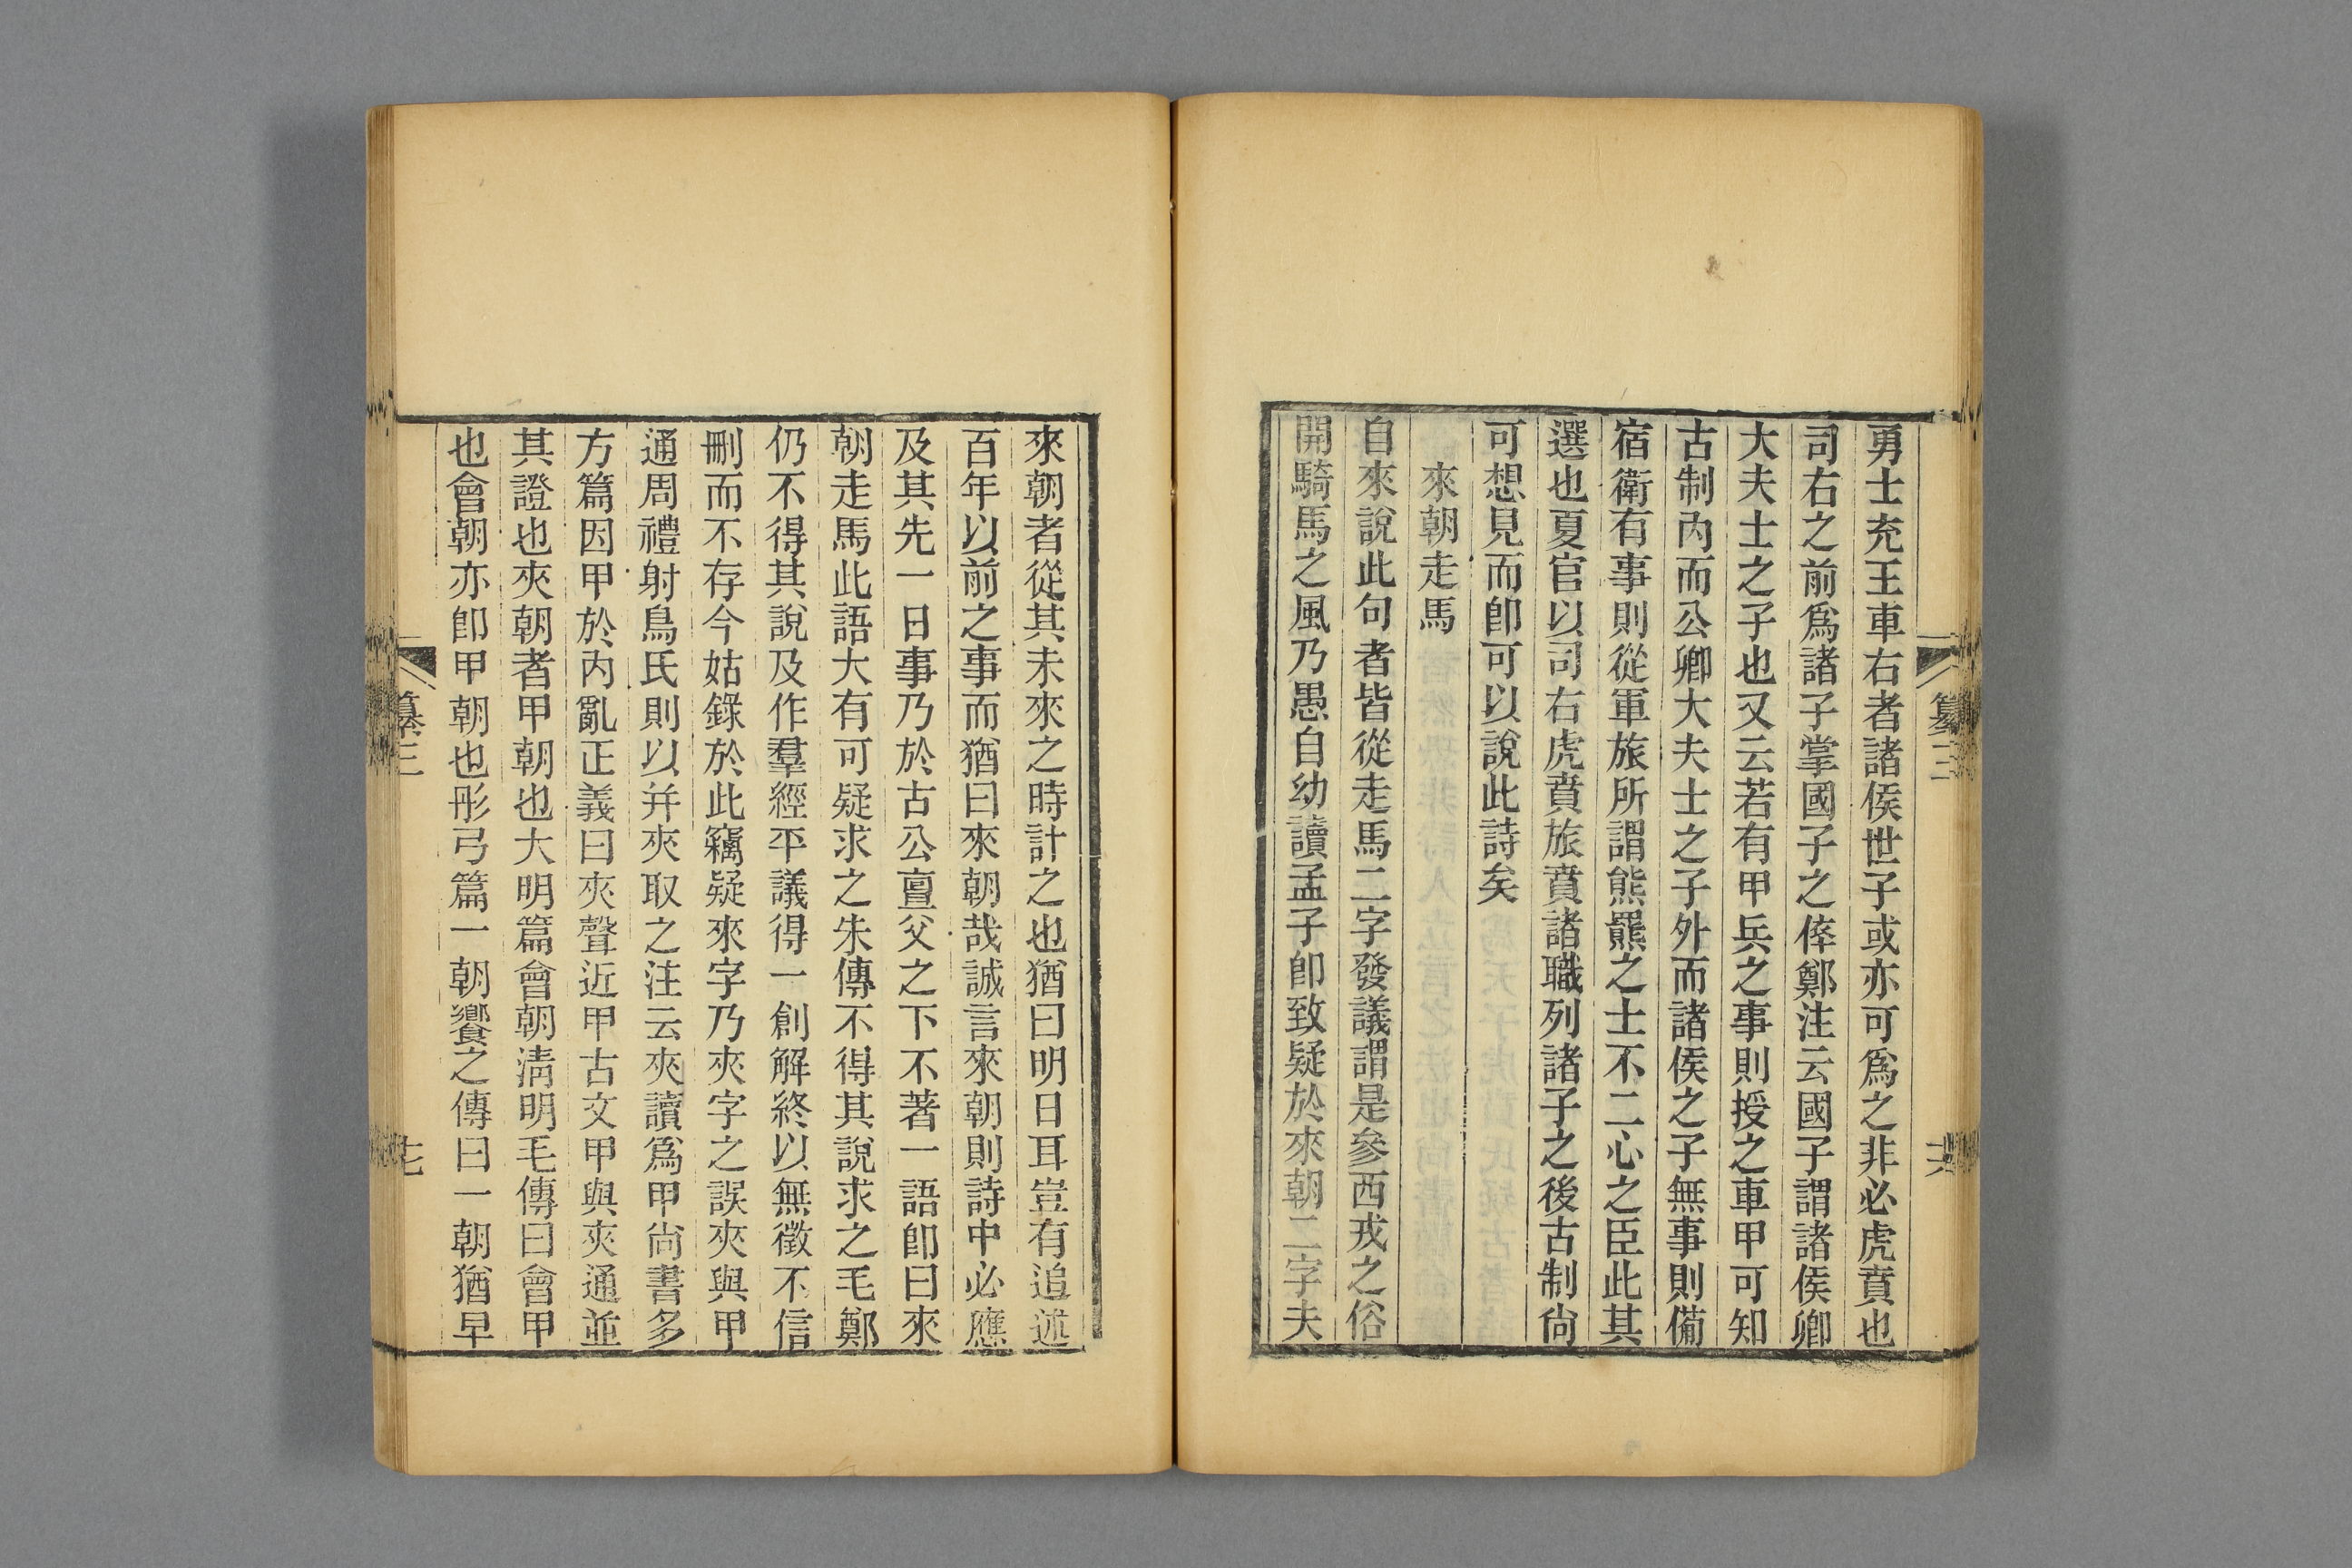 勇士充王車右者諸侯世子或亦可爲之非必虎賁也
司右之前爲諸子掌國子之倅鄭注云國子謂諸侯卿
大夫士之子也又云若有甲兵之事則授之車甲可知
古制內而公卿大夫士之子外而諸侯之子無事則備
宿衞有事則從軍旅所謂熊羆之士不二心之臣此其
選也夏官以司右虎賁旅賁諸職列諸子之後古制尙
可想見而卽可以說此詩矣
來朝走馬
自來說此句者皆從走馬二字發議謂是參西戎之俗
開騎馬之風乃愚自幼讀孟子卽致疑於來朝二字夫
纂三
十六
來朝者從其未來之時計之也猶曰明日耳豈有追述
百年以前之事而猶曰來朝哉誠言來朝則詩中必應
及其先一日事乃於古公亶父之下不著一語卽曰來
朝走馬此語大有可疑求之朱傳不得其說求之毛鄭
仍不得其說及作羣經平議得一創解終以無徵不信
刪而不存今姑錄於此竊疑來字乃夾字之誤夾與甲
通周禮射鳥氏則以并夾取之注云夾讀爲甲尙書多
方篇因甲於內亂正義曰夾聲近甲古文甲與夾通並
其證也夾朝者甲朝也大明篇會朝淸明毛傳曰會甲
也會朝亦卽甲朝也彤弓篇一朝饗之傳曰一朝猶早
纂三
十七